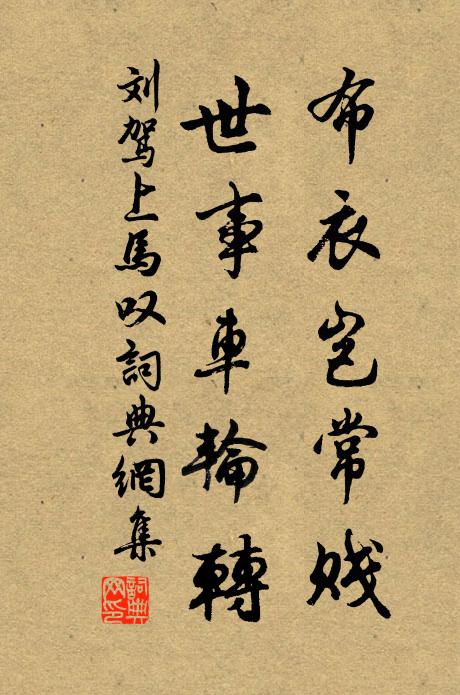 布衣岂常贱
世事車輪轉
刘驾上馬叹詞典網集
詞典网印